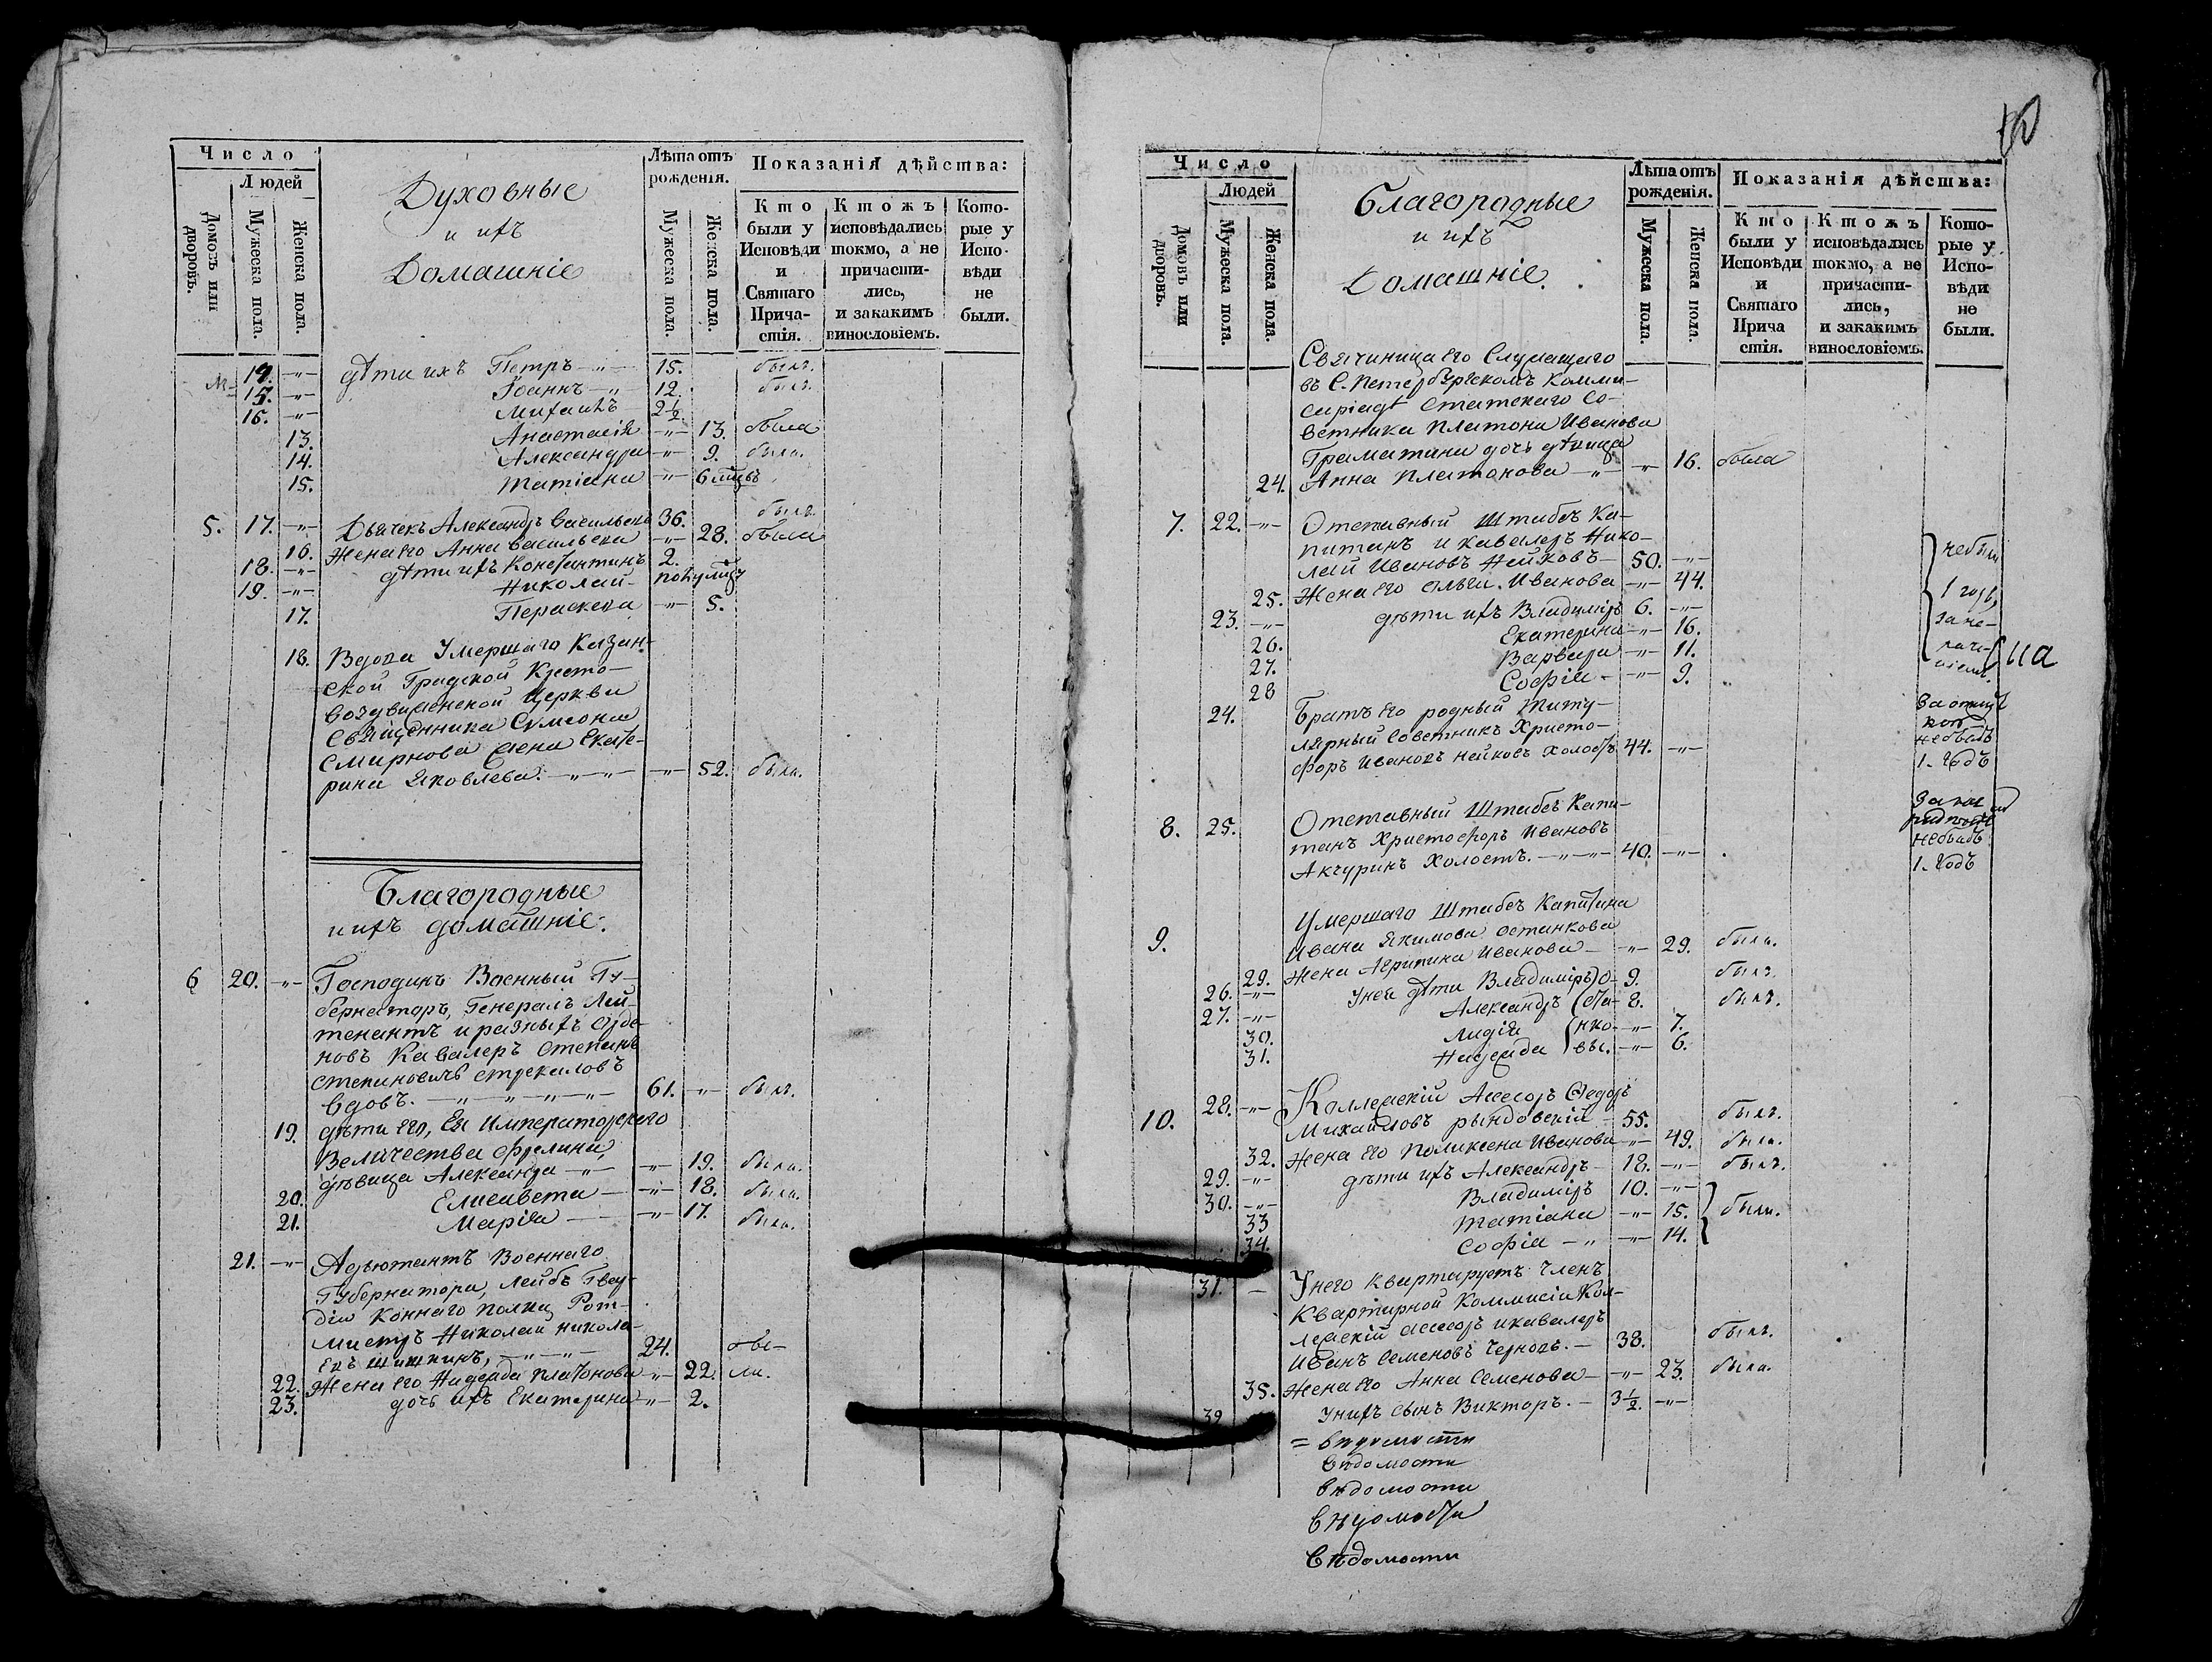 Число
Людей
Домовъ или дворовъ.
Мужеска пола.
Женска пола.
Духовные
и ихъ
Домашніе
Лѣта отъ рожденія.
Мужеска пола.
Женска пола.
Показанія дѣйства:
Кто были у Исповѣди и Святаго Прича-стія.
Ктожъ исповѣдались токмо, а не причасти-лись, и закакимъ винословіемъ.
Кото-рые у Испо-вѣди не были.
14. -"- дѣти ихъ Петръ -"- 15. былъ.
15. -"- Іоаннъ -"- 12. былъ.
16. -"- Михаилъ 2½
13. Анастасія -"- 13. была
14. Александра -"- 9. была.
15. Татіана -"- 6
5. 17. -"- Дьячекъ Александръ Васильевъ 36. былъ.
16. Жена его Анна Васильева -"- 28. была
18. -"- дѣти ихъ Константинъ 2.
19. -"- Николай - полугоду
17. Параскева -"- 5.
18. Вдова Умершаго Казан-
ской Градской Кресто-
воздвиженской Церкви
Священника Сумеона
Смирнова жена Екате-
рина Яковлева. -"-"- -"- 52. была.
Благородные
и ихъ домашніе.
6 20. -"- Господинъ Военный Гу-
бернаторъ, Генералъ Лей-
тенантъ и разныхъ Орде-
новъ Кавалеръ Степанъ
Степановичъ Стрекаловъ
вдовъ. -"-"-"-"- 61. -"- былъ.
19. дѣти его, Ея Императорскаго
Величества фрелина,
дѣвица Александра -"- -"- 19. была.
20. Елисавета -"- 18. была.
21. Марія -"- 17. была.
21. -"- Адъютантъ Военнаго
Губернатора, Лейбъ Гвар-
діи Коннаго полка Рот-
мистръ Николай Никола-
евъ Шишкинъ, -"-"- 24. обе-
22. Жена его Надежда Платонова -"- 22. ли.
23. дочь ихъ Екатерина -"- 2.
Число
Людей
Домовъ или дворовъ.
Мужеска пола.
Женска пола.
Благородные
и ихъ
Домашніе.
Лѣта отъ рожденія.
Мужеска пола.
Женска пола.
Показанія дѣйства:
Кто были у Исповѣди и Святаго Прича стія.
Ктожъ исповѣдались токмо, а не причасти-лись, и закакимъ винословіемъ.
Кото-рые у Испо-вѣди не были.
Свячиница его Служащаго
въ С. Петербургскомъ Комми-
саріадѣ Статскаго Со-
ветника Платона Иванова
Граматина дочь дѣвица
24. Анна Платонова -"- -"- 16. была
7. 22. -"- Отставный Штабсъ Ка-
питанъ и кавалеръ Нико-
лай Ивановъ Нейковъ 50. -"-
25. Жена его Ольга Иванова -"- 44.
23. -"- дѣти ихъ Владиміръ 6. -"-
26. Екатерина -"- 16.
27. Варвара -"- 11.
28 Софія - -"- 9.
небыли
1 годъ
за не-
24. Братъ его родный Титу-
лярный Советникъ Христо-
форъ Ивановъ Нейковъ холостъ 44. -"-
небылъ
1. Годъ
8. 25. Отставный Штабсъ Капи-
танъ Христофоръ Ивановъ
Акчуринъ Холостъ. -"-"- 40. -"-
небылъ
1. Годъ
9. Умершаго Штабсъ Капитана
Ивана Якимова Останкова
29. Жена Агрипина Иванова -"- 29. была.
26. -"- Унея дѣти Владиміръ О- 9. былъ.
27. -"- Александръ ста- 8. былъ.
30. Лидія нко- -"- 7.
31. Надежда вы. -"- 6.
10. 28. -"- Коллежскій Асессоръ Федоръ
Михайловъ Рындовскій 55. былъ.
32. Жена его Поликсена Иванова -"- 49. была.
29. -"- дѣти ихъ Александръ 18. -"- былъ.
30. -"- Владиміръ 10. -"-
33 Татіана -"- 15. были.
34. Софія -"- -"- 14.
31. - Унего квартируетъ Членъ
Квартирной Коммисіи Кол-
лежскій Асессоръ и кавалеръ
Иванъ Семеновъ Черновъ. - 38. былъ.
35. Жена его Анна Семенова -"- 23. была.
32 Унихъ сынъ Викторъ. - 3½. -"-
= вѣдомости
вѣдомости
вѣдомости
вѣдомости
вѣдомости